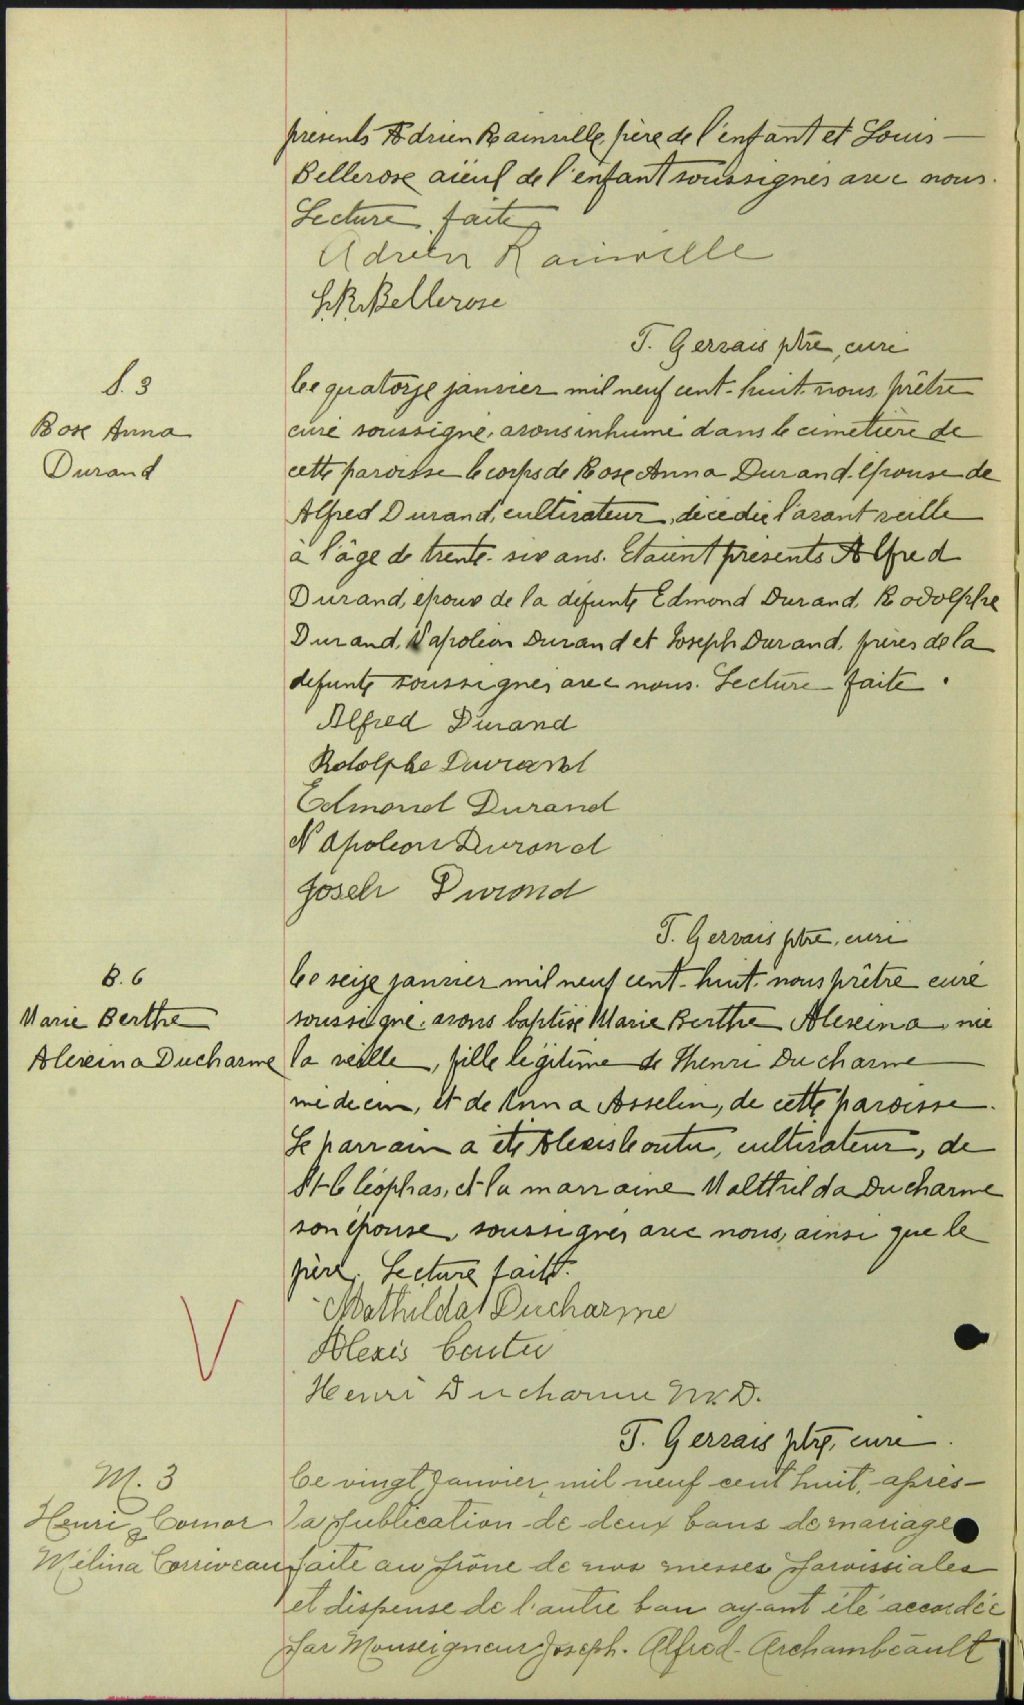 présents Adrien Rainville, père de l'enfant et Louis
Bellerose aïeul de l'enfant soussignés avec nous.
Lecture faite
Adrien Rainville
L.R. Bellerose
T. Gervais ptre, curé
S. 3
Rose Anna
Durand
Le quatorze janvier mil neuf cent-huit nous, prêtre
curé soussigné, avons inhumé dans le cimetière de
cette paroisse le corps de Rose Anna Durand épouse de
Alfred Durand, cultivateur, décédée l'avant veille
à l'âge de trente-six ans. Etaient présents Alfred
Durand, époux de la défunte Edmond Durand, Rodolphe
Durand, Napoléon Durand et Joseph Durand, frères de la
défunte soussignés avec nous. Lecture faite.
Alfred Durand
Rodolphe Durand
Edmond Durand
Napoleon Durand
Joseh Durand
T. Gervais ptre, curé
B. 6
Marie Berthe
Alexina Ducharme
Le seize janvier mil neuf cent-huit nous prêtre curé
soussigné, avons baptisé Marie Berthe Alexina, née
la veille, fille légitime de Henri Ducharme
médecin, et de Anna Asselin, de cette paroisse.
Le parrain a été Alexis Coutu, cultivateur, de
St-Cléophas, et la marraine Malthilda Ducharme
son épouse, soussignés avec nous, ainsi que le
père. Lecture faite.
Mathilda Ducharme
Alexis Coutu
Henri Ducharme M.D.
T. Gervais ptre, curé.
M. 3
Henri Comor
&
Mélina Corriveau
Ce vingt Janvier, mil neuf cent huit, après
la publication de deux bans de mariage
faite au prône de nos messes paroissiales
et dispense de l'autre ban ayant été accordée
par Monseigneur Joseph-Alfred-Archambeault